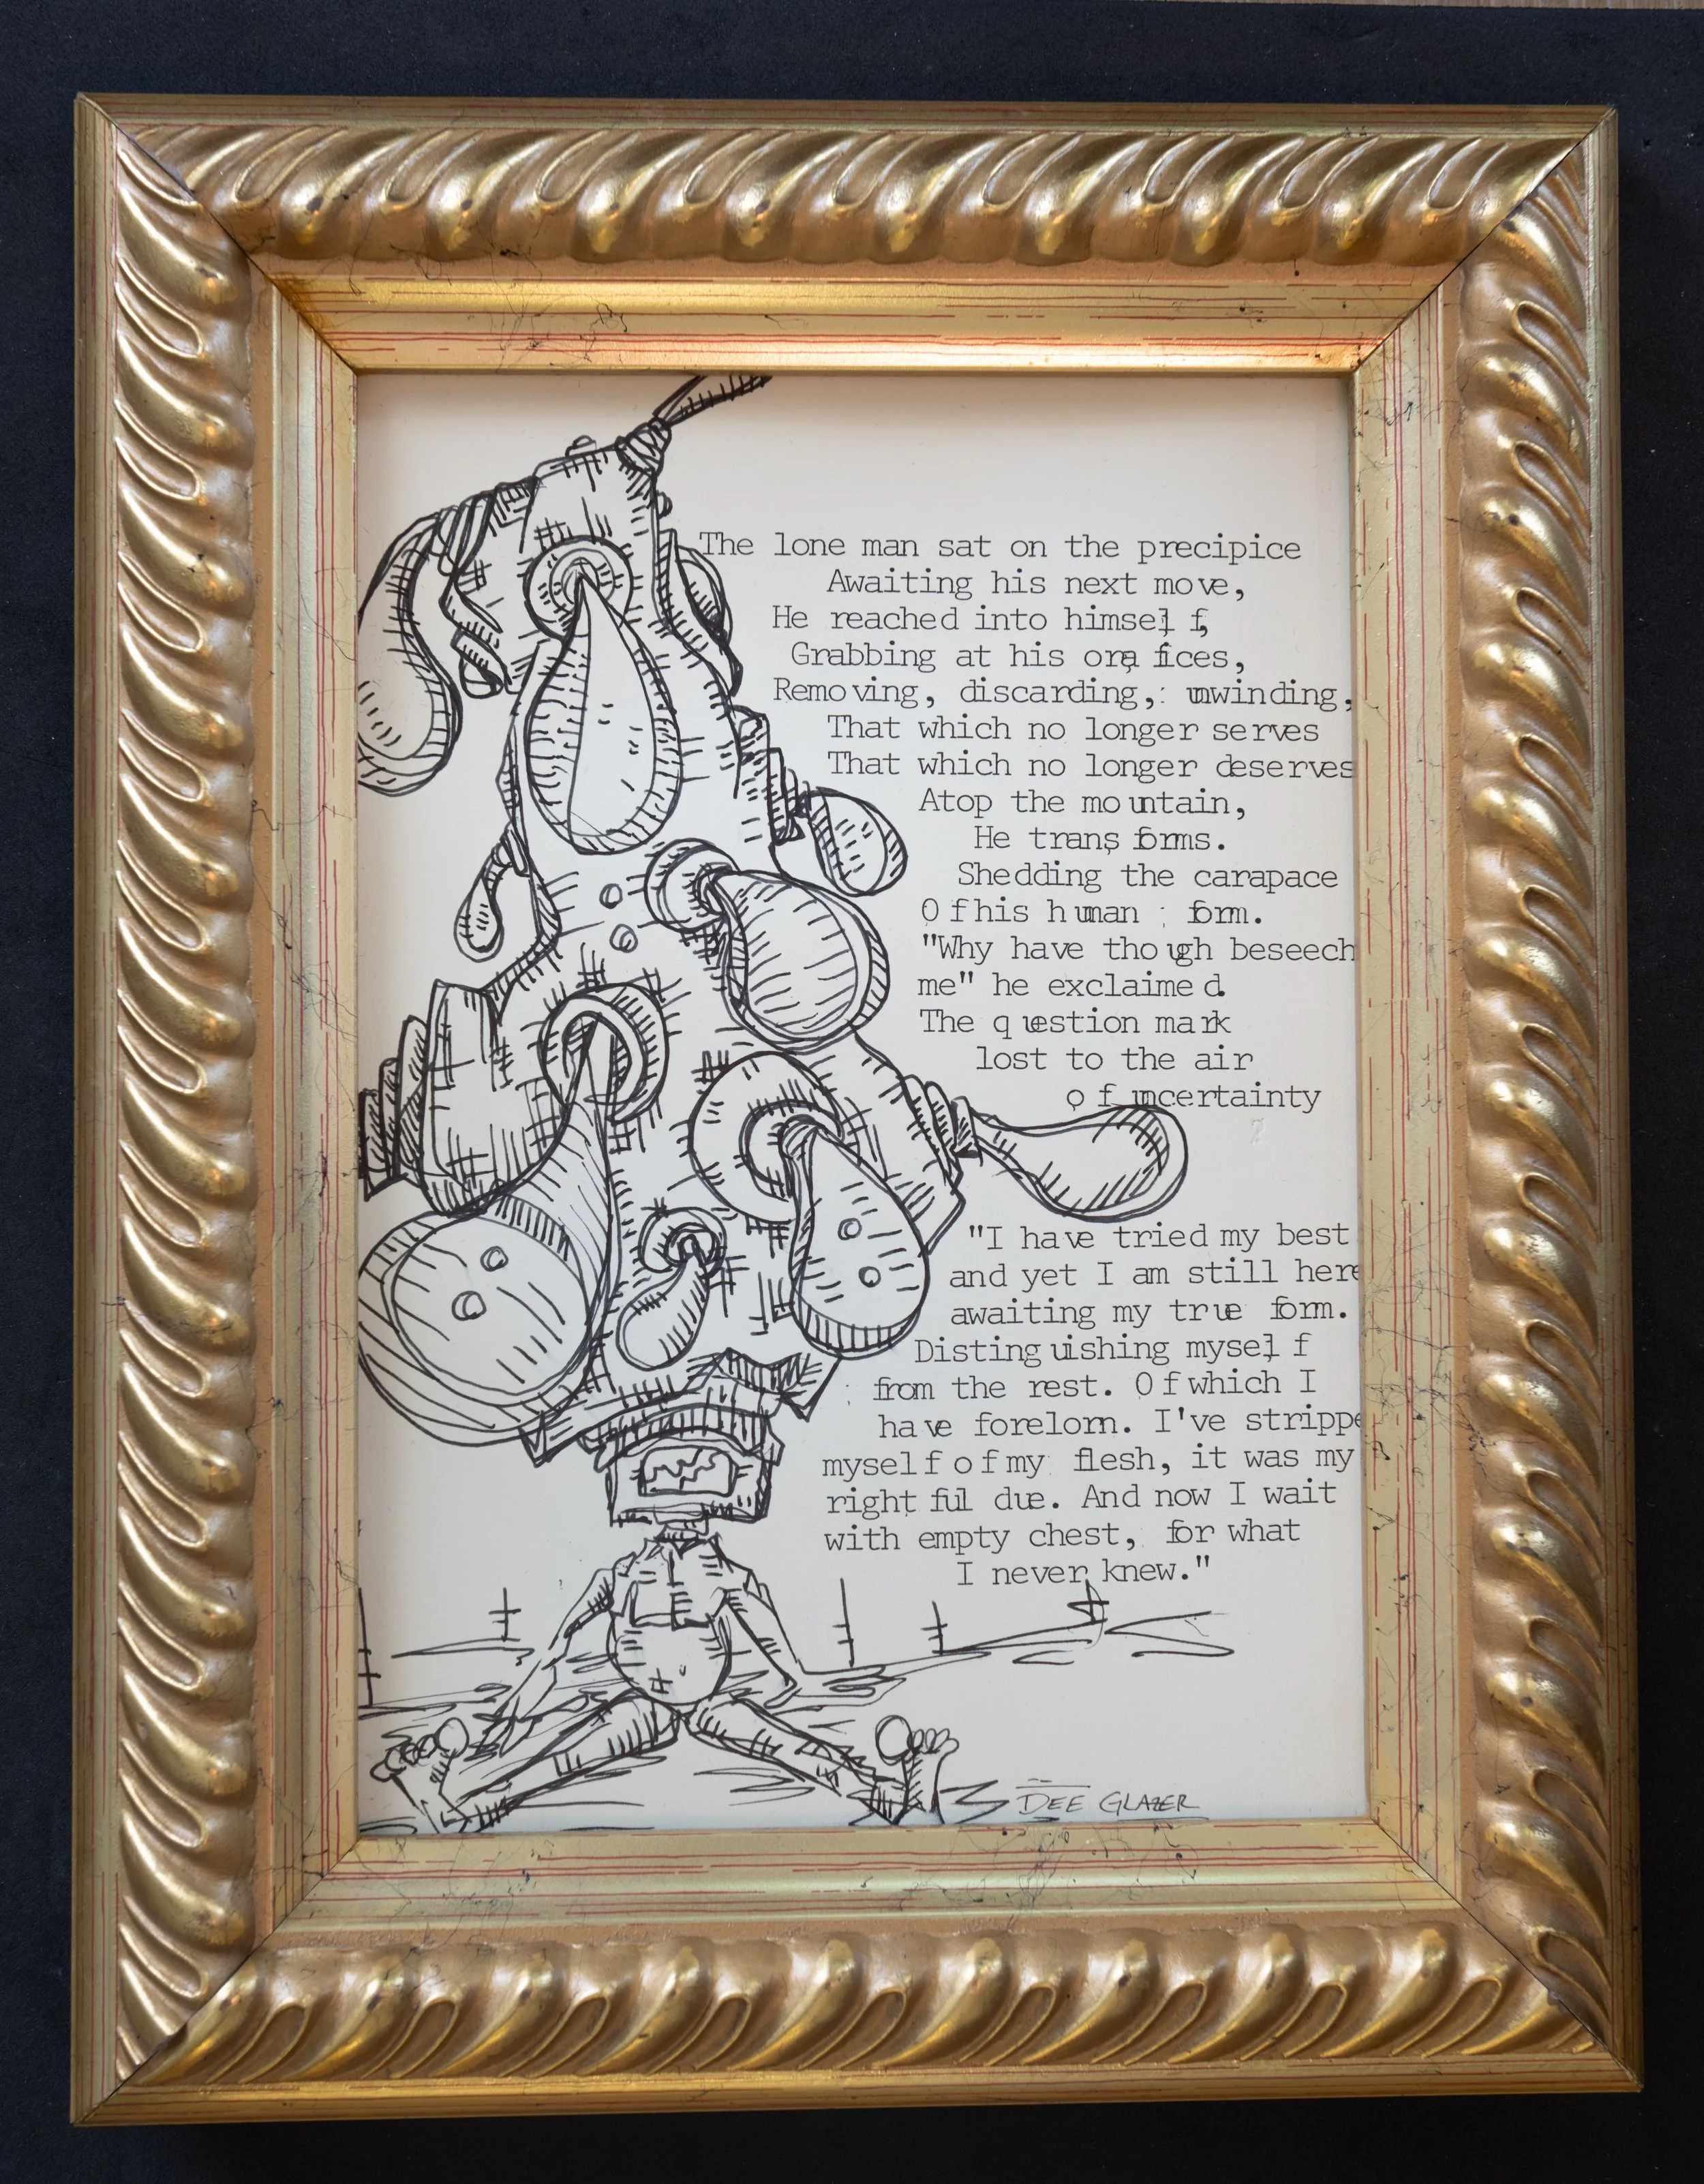 The lone man sat on the precipice
Awaiting his next move,
He reached into himself,
Grabbing at his orafices,
Removing, discarding, unwinding,
That which no longer serves
That which no longer deserves
Atop the mountain,
He transforms.
Shedding the carapace
Of his human form.
"Why have though beseech
me" he exclaimed.
The question mark
lost to the air
of uncertainty
?
"I have tried my best
and yet I am still here
awaiting my true form.
Distinguishing myself
from the rest. Of which I
have forelorn. I've strippe
myself of my flesh, it was my
rightful due. And now I wait
with empty chest, for what
I never knew."
DEE GLAZER